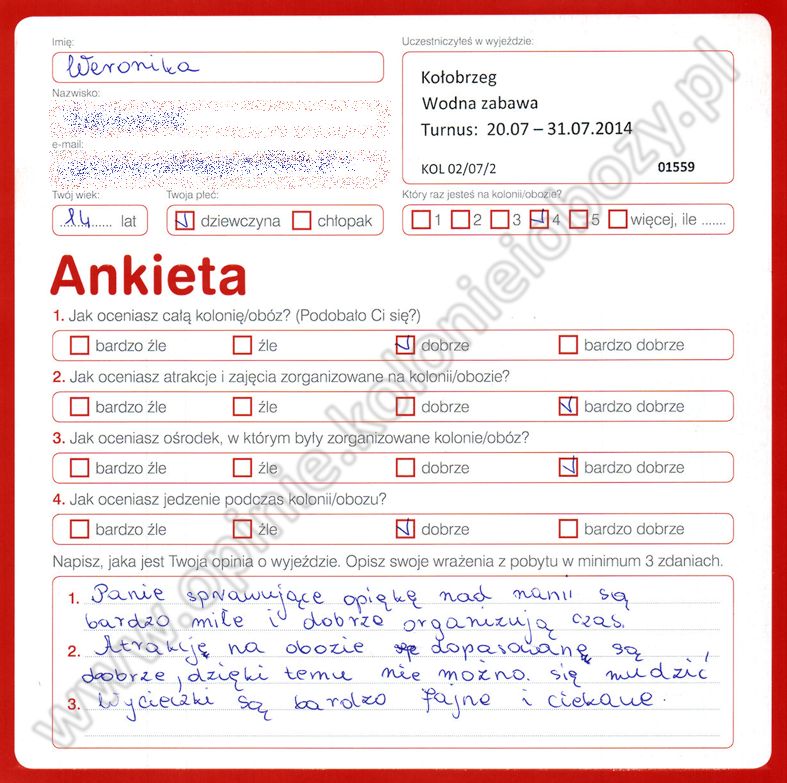 Imię:
Weronika
Nazwisko:
e-mail:
Twój wiek:
14 lat
Twoja płeć:
dziewczyna chłopak
Uczestniczyłeś w wyjeździe:
Kołobrzeg
Wodna zabawa
Turnus: 20.07 – 31.07.2014
KOL 02/07/2 01559
Który raz jesteś na kolonii/obozie?
1 2 3 4 5 więcej, ile .......
Ankieta
1. Jak oceniasz całą kolonię/obóz? (Podobało Ci się?)
bardzo źle źle dobrze bardzo dobrze
2. Jak oceniasz atrakcje i zajęcia zorganizowane na kolonii/obozie?
bardzo źle źle dobrze bardzo dobrze
3. Jak oceniasz ośrodek, w którym były zorganizowane kolonie/obóz?
bardzo źle źle dobrze bardzo dobrze
4. Jak oceniasz jedzenie podczas kolonii/obozu?
bardzo źle źle dobrze bardzo dobrze
Napisz, jaka jest Twoja opinia o wyjeździe. Opisz swoje wrażenia z pobytu w minimum 3 zdaniach.
1. Panie sprawujące opiękę nad nami są
bardzo miłe i dobrze organizują czas.
2. Atrakcję na obozie dopasowane są
dobrze, dzięki temu nie można się nudzić
3. Wycieczki są bardzo fajne i ciekawe.
www.opinie.kolonieiobozy.pl